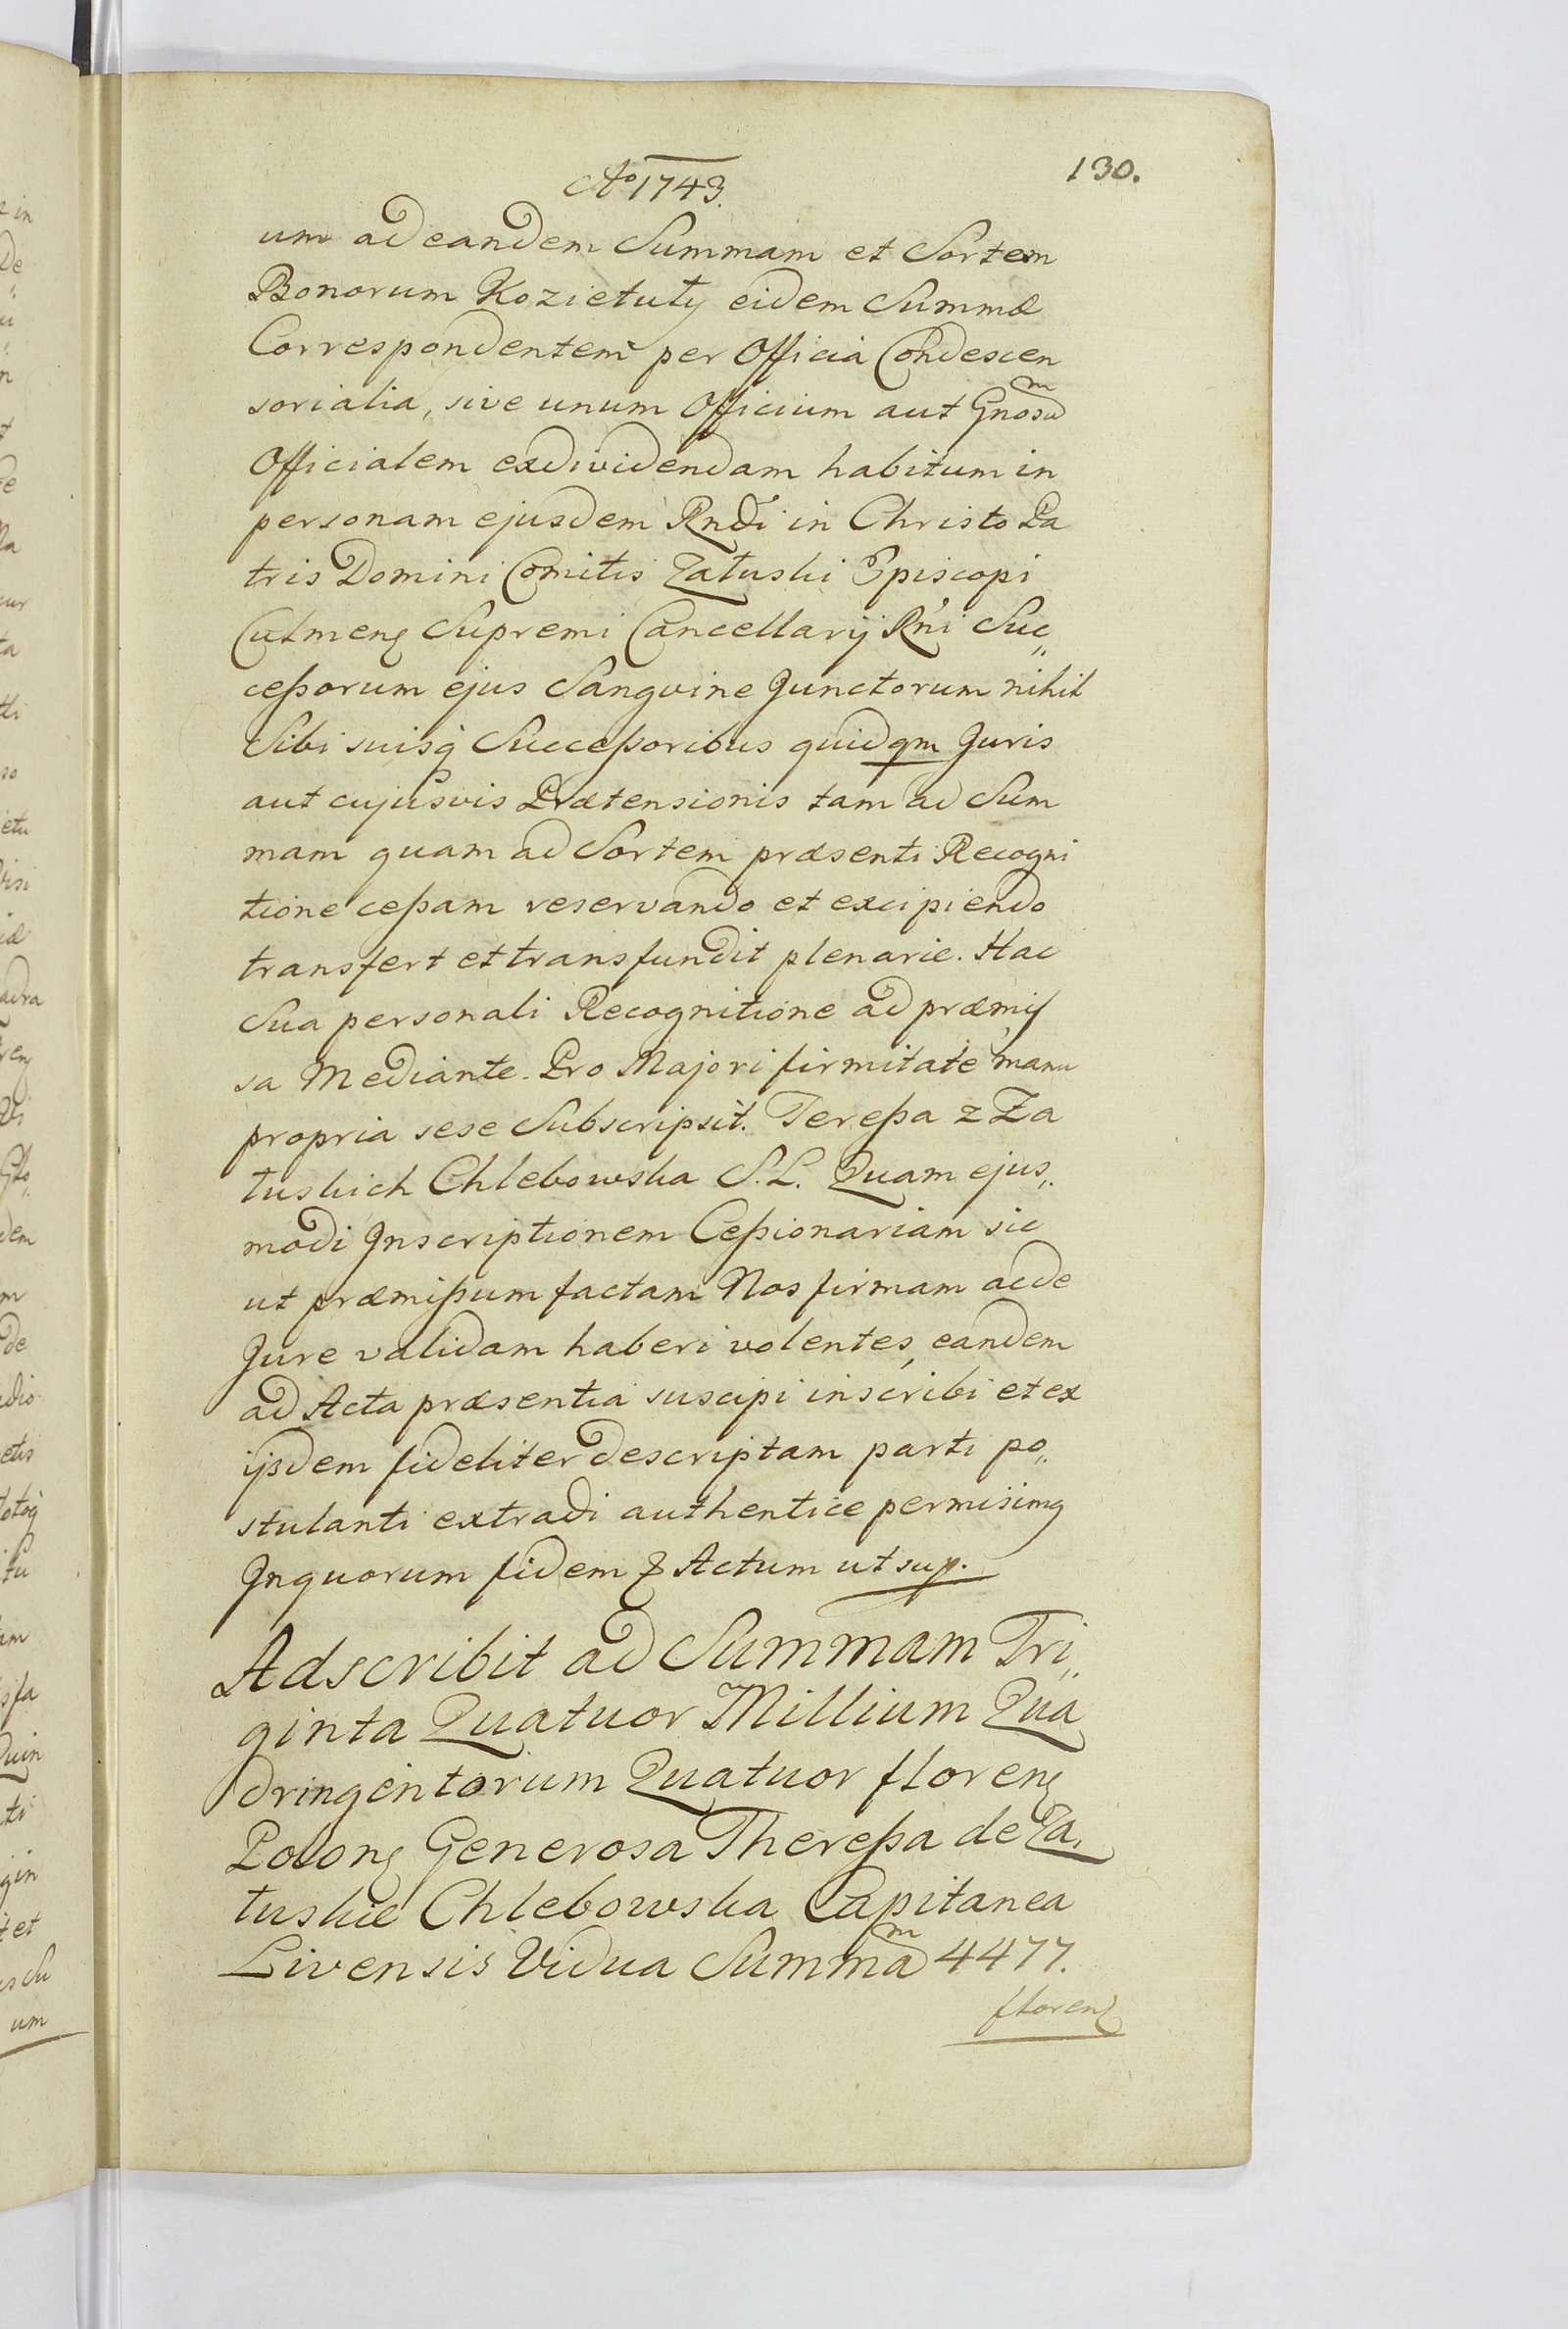 130.
Aº 1743.
um ad eandem Summam et Sortem
Bonorum Kozietuły eidem Summæ
Correspondentem per Officia Condescen
sorialia, sive unum Officium aut Gnosum
Officialem exdividendam habitum in
personam ejusdem Rndi in Christo Pa
tris Domini Comitis Załuski Episcopi
Culmenę Supremi Cancellarij Rni Suc„
ceßorum ejus Sangvine Junctorum nihil
Sibi suisq Succeßoribus quidqm Juris
aut cujusvis Prætensionis tam ad Sum
mam quam ad Sortem præsenti Recogni
tione ceßam reservando et excipiendo
transfert et transfundit plenarie. Hac
Sua personali Recognitione ad præmis
sa Mediante. Pro Majori firmitate manu
propria sese Subscripsit. Tereßa z Za
łuskich Chlebowska S. L. Quam ejus„
modi Inscriptionem Ceßionariam sic
ut præmißum factam Nos firmam ac de
Jure validam haberi volentes, eandem
ad Acta præsentia suscipi inscribi et ex
ijsdem fideliter descriptam parti po„
stulanti extradi authentice permisimq
In quorum fidem & Actum ut sup.
Adscribit ad Summam Tri„
ginta Quatuor Millium Qua
dringentorum Quatuor florenę
Polonę Generosa Thereßa de Za„
łuskie Chlebowska Capitanea
Livensis Vidua Summam 4477.
florenę